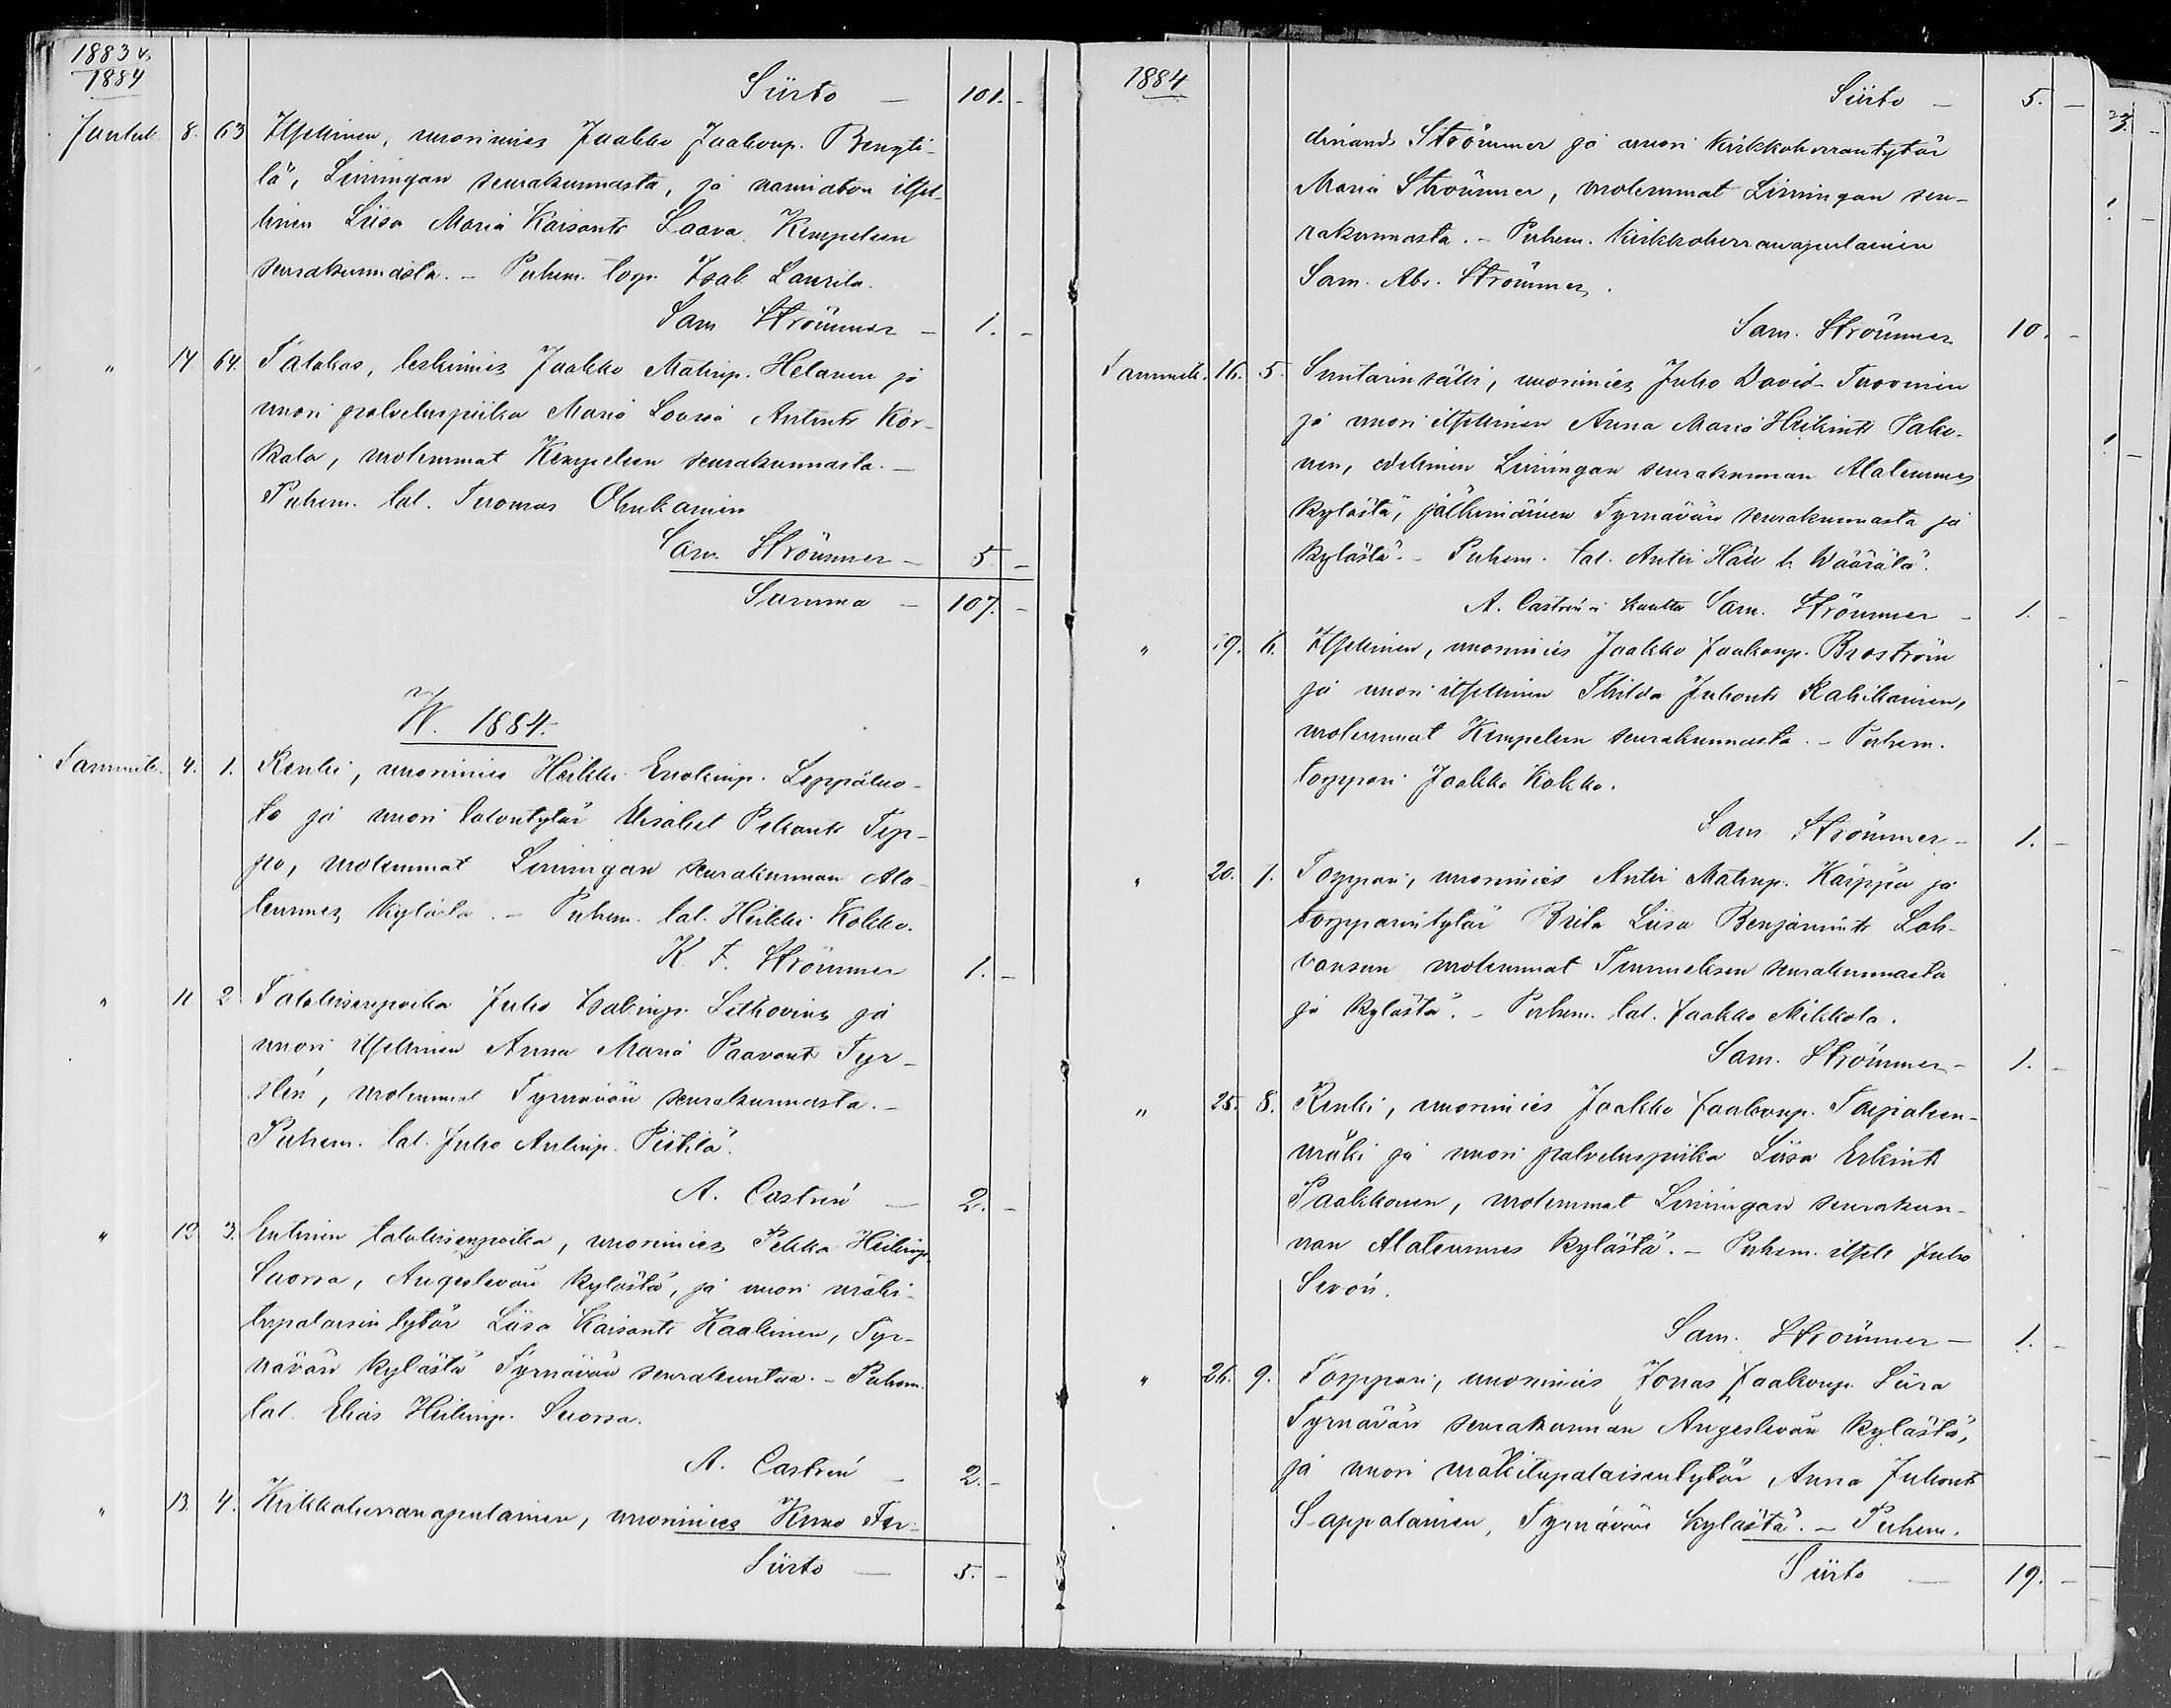 1883 v.
1884
Siirto — 101. –
Jouluk. 8. 63 Itsellinen, nuorimies Jaakko Jaakonp. Bengti-
lä, Limingan seurakunnasta, ja naimaton itsel-
linen Liisa Maria Kaisantr Laava Kempeleen
seurakunnasta. – Puhem. torp. Isak Laurila.
Sam Strömmer – 1. –
" 14. 64. Talokas, leskimies Jaakko Matinp. Helanen ja
nuori palveluspiika Maria Lovisa Antintr Kor-
kala, molemmat Kempeleen seurakunnasta. –
Puhem. tal. Tuomas Ohukainen
Sam. Strömmer – 5. –
Summa – 107. –
W. 1884.
Tammik. 4. 1. Renki, nuorimies Heikki Erkinp. Leppäluo-
to ja nuori talontytär Elisabet Pekantr Tep-
po, molemmat Limingan seurakunnan Ala-
temmes kylästä. – Puhem. tal. Heikki Kokko.
K. F. Strömmer 1. –
" 11 2 Talollisenpoika Juho Isakinp. Sitkovius ja
nuori itsellinen Anna Maria Paavontr Tyr-
slén, molemmat Tyrnävän seurakunnasta. –
Puhem. tal. Juho Antinp. Pietilä.
A. Castrén — 2. –
" 13 3. Entinen talollisenpoika, nuorimies Pekka Heikinp.
Suorra, Angeslevän kylästä, ja nuori mäki-
tupalaisen tytär Liisa Kaisantr Kaakinen, Tyr-
nävän kylästä Tyrnävän seurakuntaa. – Puhem.
tal. Elias Heikinp. Suorra.
A. Castrén – 2. –
" 13. 4. Kirkkoherranapulainen, nuorimies Kuno Fer-
Siirto — 5. –
1884
Siirto – 5. –
dinand Strömmer ja nuori Kirkkoherrantytär
Maria Strömmer, molemmat Limingan seu-
rakunnasta. – Puhem. Kirkkoherranapulainen
Sam. Abr. Strömmer.
Sam. Strömmer 10. –
Tammik. 16. 5. Suutarinsälli, nuorimies Juho David Tuominen
ja nuori itsellinen Anna Maria Heikintr Pako-
nen, edellinen Limingan seurakunnan Alatemmes
kylästä, jälkimäinen Tyrnävän seurakunnasta ja
kylästä. – Puhem. tal. Antti Häu l. Wäärälä.
A. Castrén'in kautta Sam. Strömmer – 1. –
" 19. 6. Itsellinen, nuorimies Jaakko Jaakonp. Broström
ja nuori itsellinen Thilda Juhontr Kakikainen,
molemmat Kempeleen seurakunnasta. – Puhem.
torppari Jaakko Kokko.
Sam Strömmer – 1. –
" 20. 7. Torppari, nuorimies Antti Matinp. Kärppä ja
torpparintytär Brita Liisa Benjamintr Loh-
vansuu molemmat Temmeksen seurakunnasta
ja kylästä. – Puhem. tal. Jaakko Mikkola.
Sam. Strömmer – 1. –
" 25. 8. Renki, nuorimies Jaakko Jaakonp. Taipaleen-
mäki ja nuori palveluspiika Liisa Erkintr
Paakkonen, molemmat Limingan seurakun-
nan Alatemmes kylästä. – Puhem. itsell. Juho
Sevón.
Sam. Strömmer – 1. –
" 26. 9. Torppari, nuorimies Jonas Jaakonp. Siira
Tyrnävän seurakunnan Angeslevän kylästä,
ja nuori mäkitupalaisentytär Anna Juhontr
Sappalainen, Tyrnävän kylästä. – Puhem.
Siirto — 19. –